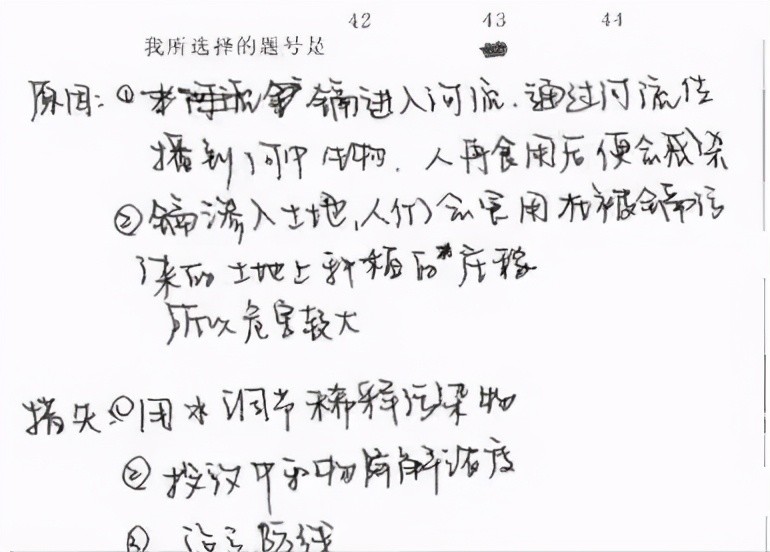 42 43 44
我所选择的题号是
原因:①镉进入河流.通过河流传
播到河中生物.人再食用后便会感染
②镉渗入土地,人们会食用在被镉污
染的土地上种植的庄稼
所以危害较大
措失:①用水调节稀释污染物
②投放中和物降解浓度
③设立防线